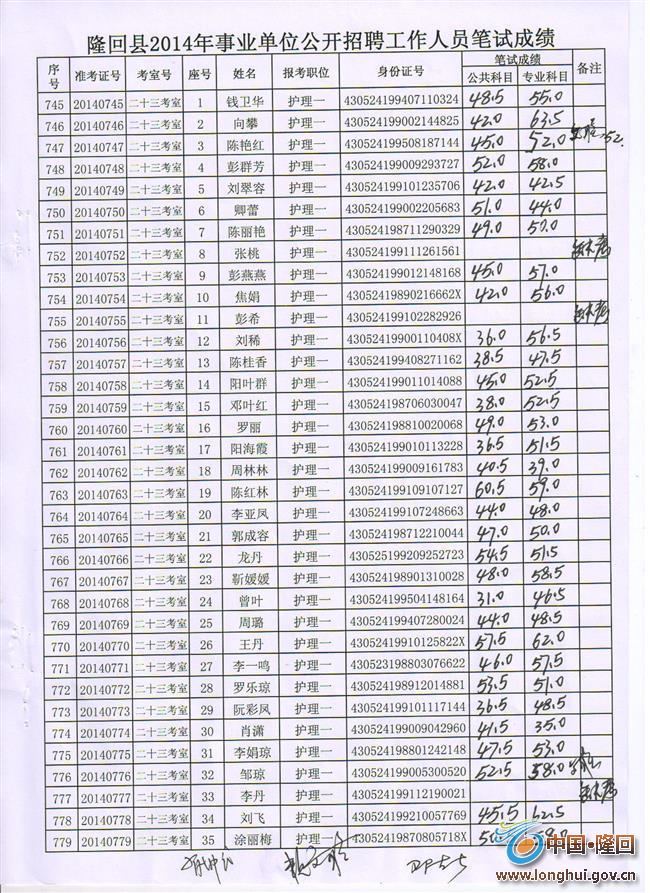 隆回县2014年事业单位公开招聘工作人员笔试成绩
序号 准考证号 考室号 座号 姓名 报考职位 身份证号 笔试成绩 备注
公共科目 专业科目
745 20140745 二十三考室 1 钱卫华 护理一 430524199407110324 48.5 55.0
746 20140746 二十三考室 2 向攀 护理一 430524199002144825 42.0 63.5
747 20140747 二十三考室 3 陈艳红 护理一 430524199508187144 45.0 52.0
748 20140748 二十三考室 4 彭群芳 护理一 430524199009293727 52.0 58.0
749 20140749 二十三考室 5 刘翠容 护理一 430524199101235706 42.0 42.5
750 20140750 二十三考室 6 卿蕾 护理一 430524199002205683 51.0 44.0
751 20140751 二十三考室 7 陈丽艳 护理一 430524198711290329 49.0 50.0
752 20140752 二十三考室 8 张桃 护理一 430524199111261561 缺考
753 20140753 二十三考室 9 彭燕燕 护理一 430524199012148168 45.0 57.0
754 20140754 二十三考室 10 焦娟 护理一 43052419890216662X 42.0 56.0
755 20140755 二十三考室 11 彭希 护理一 430524199102282926 缺考
756 20140756 二十三考室 12 刘稀 护理一 43052419900110408X 36.0 56.5
757 20140757 二十三考室 13 陈桂香 护理一 430524199408271162 38.5 47.5
758 20140758 二十三考室 14 阳叶群 护理一 430524199011014088 45.0 52.5
759 20140759 二十三考室 15 邓叶红 护理一 430524198706030047 38.0 52.5
760 20140760 二十三考室 16 罗丽 护理一 430524198810020068 49.0 53.0
761 20140761 二十三考室 17 阳海霞 护理一 430524199010113228 36.5 51.5
762 20140762 二十三考室 18 周林林 护理一 430524199009161783 40.5 39.0
763 20140763 二十三考室 19 陈红林 护理一 430524199109107127 60.5 59.0
764 20140764 二十三考室 20 李亚凤 护理一 430524199107248663 44.0 48.0
765 20140765 二十三考室 21 郭成容 护理一 430524198712210044 47.0 50.0
766 20140766 二十三考室 22 龙丹 护理一 430525199209252723 54.5 51.5
767 20140767 二十三考室 23 靳媛媛 护理一 430524198901310028 48.0 58.5
768 20140768 二十三考室 24 曾叶 护理一 430524199504148164 31.0 46.5
769 20140769 二十三考室 25 周璐 护理一 430524199407280024 44.0 48.5
770 20140770 二十三考室 26 王丹 护理一 43052419910125822X 57.5 62.0
771 20140771 二十三考室 27 李一鸣 护理一 430523198803076622 46.0 57.5
772 20140772 二十三考室 28 罗乐琼 护理一 430524198912014881 53.5 51.0
773 20140773 二十三考室 29 阮彩凤 护理一 430524199101117144 36.5 48.5
774 20140774 二十三考室 30 肖潇 护理一 430524199009042960 41.5 35.0
775 20140775 二十三考室 31 李娟琼 护理一 430524198801242148 47.5 53.0
776 20140776 二十三考室 32 邹琼 护理一 430524199005300520 52.5 58.0
777 20140777 二十三考室 33 李丹 护理一 430524199112190021 缺考
778 20140778 二十三考室 34 刘飞 护理一 430524199210057769 45.5 62.5
779 20140779 二十三考室 35 涂丽梅 护理一 43052419870805718X
中国·隆回
www.longhui.gov.cn